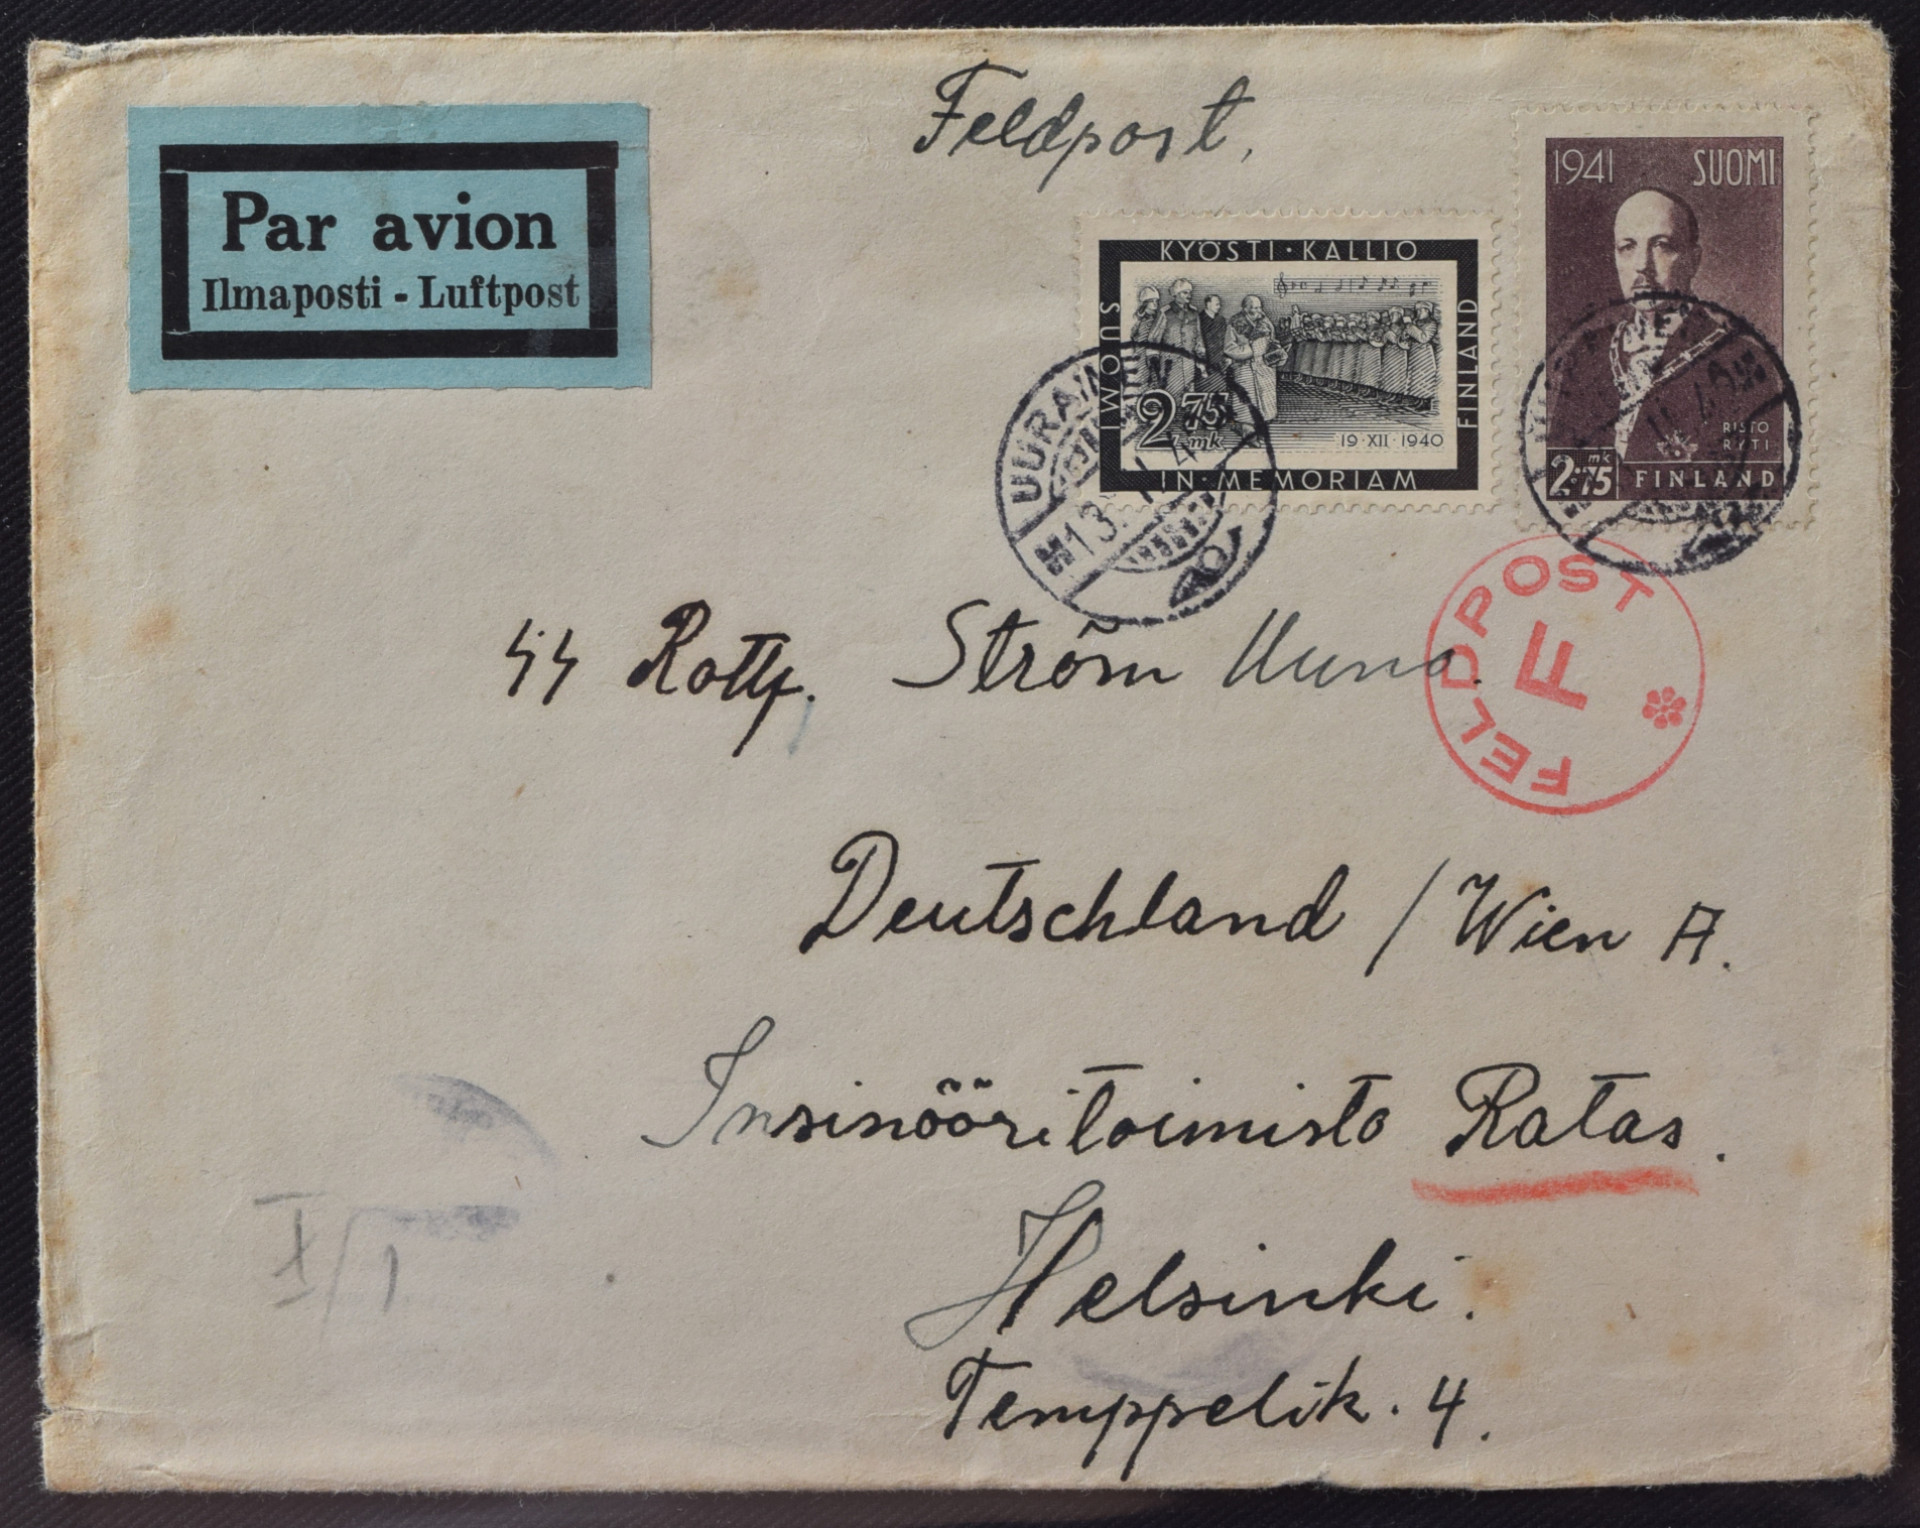 Feldpost.
Par avion
Ilmaposti - Luftpost
KYÖSTI · KALLIO
SUOMI
FINLAND
2 75 mk
19 · XII · 1940
IN · MEMORIAM
1941 SUOMI
RISTO
RYTI
2:75 mk
FINLAND
UURAINEN
13
FELDPOST
F
SS Rottf. Ström Uuno.
Deutschland / Wien A.
Insinööritoimisto Ratas.
Helsinki.
Temppelik. 4.